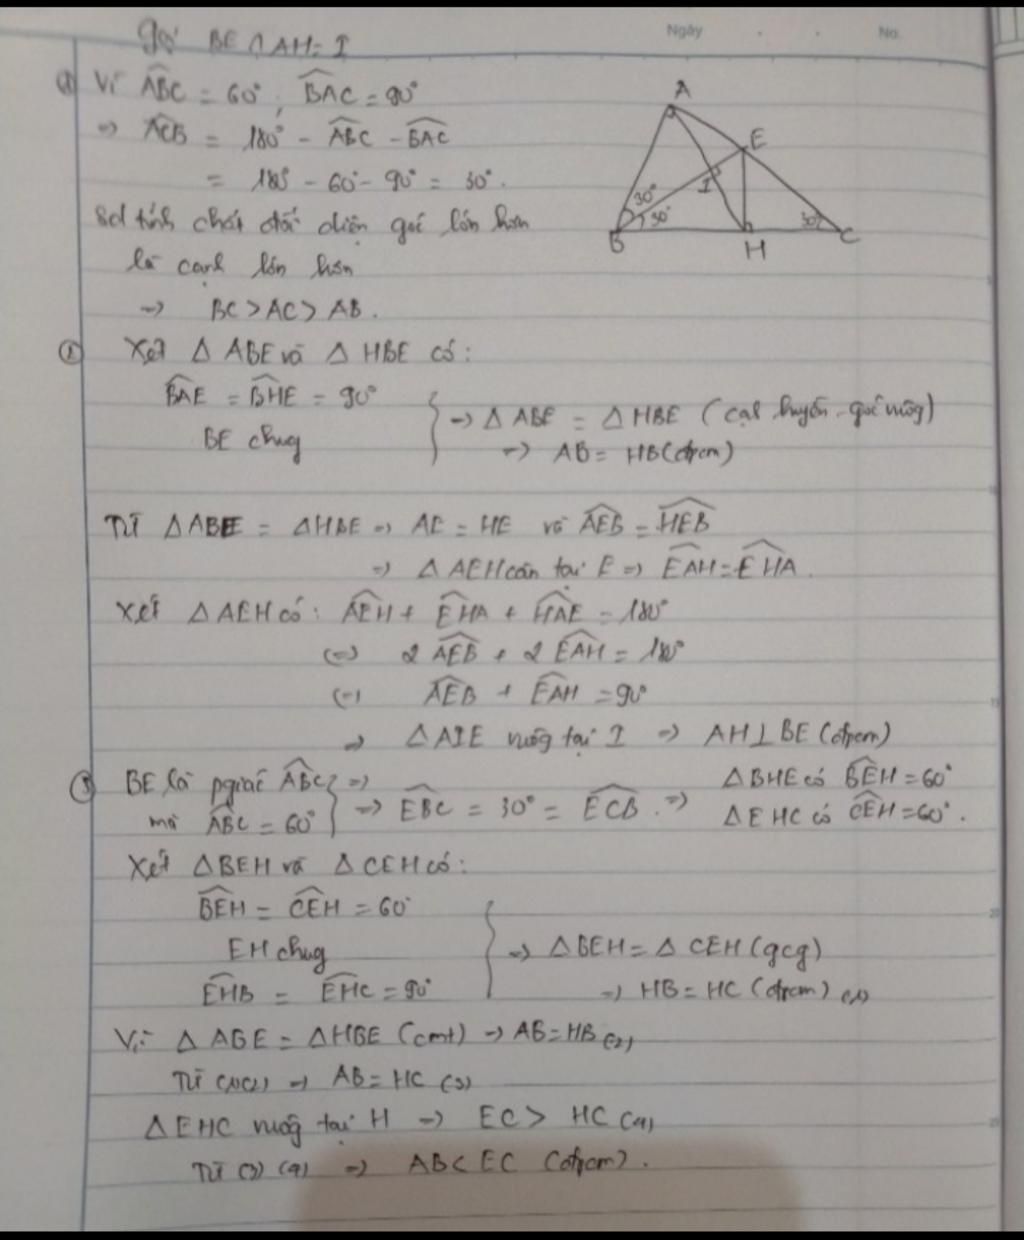 Ngày . . No.
gọi BE ∩ AH = I
① Vì ABC = 60°, BAC = 90°
=> ACB = 180° - ABC - BAC
= 180° - 60° - 90° = 30°.
tính chất đối diện góc lớn hơn
là cạnh lớn hơn
=> BC > AC > AB.
A
E
I
30°
30°
30°
B
H
C
② Xét Δ ABE và Δ HBE có:
BAE = BHE = 90°
BE chug
=> Δ ABE = Δ HBE (cạh huyền - góc nhọn)
=> AB = HB (đpcm)
Từ ΔABE = ΔHBE => AE = HE và AEB = HEB
=> Δ AEH cân tại E => EAH = EHA.
Xét Δ AEH có: AEH + EHA + HAE = 180°
(=) 2 AEB + 2 EAH = 180°
(=) AEB + EAH = 90°
=> Δ AIE vuôg tại I => AH ⊥ BE (đpcm)
③ BE là pgiác ABC =>
mà ABC = 60°
=> EBC = 30° = ECB. =>
Δ BHE có BEH = 60°
Δ EHC có CEH = 60°.
Xét Δ BEH và Δ CEH có:
BEH = CEH = 60°
EH chug
EHB = EHC = 90°
=> Δ BEH = Δ CEH (gcg)
=> HB = HC (đpcm) (1)
Vì Δ ABE = Δ HBE (cmt) => AB = HB (2)
Từ (1)(2) => AB = HC (3)
Δ EHC vuôg tại H => EC > HC (4)
Từ (3) (4) => AB < EC (đpcm).